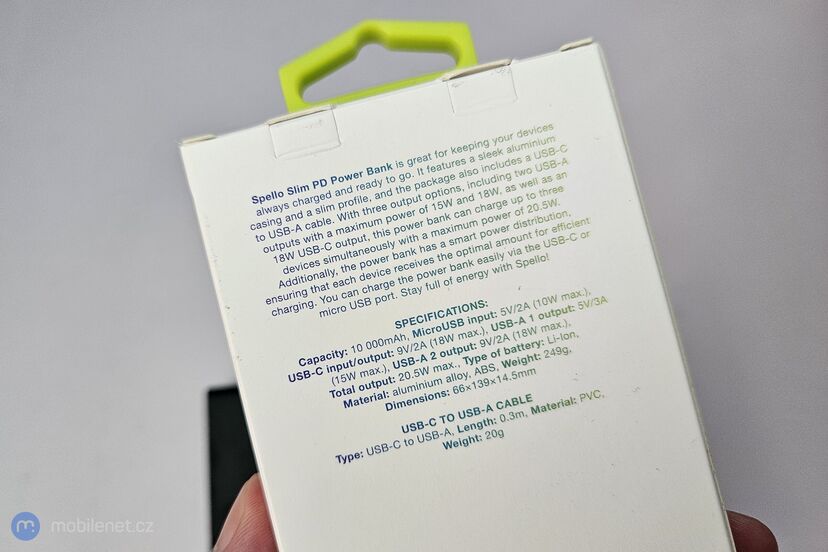 Spello Slim PD Power Bank is great for keeping your devices
always charged and ready to go. It features a sleek aluminium
casing and a slim profile, and the package also includes a USB-C
to USB-A cable. With three output options, including two USB-A
outputs with a maximum power of 15W and 18W, as well as an
18W USB-C output, this power bank can charge up to three
devices simultaneously with a maximum power of 20.5W.
Additionally, the power bank has a smart power distribution,
ensuring that each device receives the optimal amount for efficient
charging. You can charge the power bank easily via the USB-C or
micro USB port. Stay full of energy with Spello!
SPECIFICATIONS:
Capacity: 10 000mAh, MicroUSB input: 5V/2A (10W max.),
USB-C input/output: 9V/2A (18W max.), USB-A 1 output: 5V/3A
(15W max.), USB-A 2 output: 9V/2A (18W max.),
Total output: 20.5W max., Type of battery: Li-Ion,
Material: aluminium alloy, ABS, Weight: 249g,
Dimensions: 66×139×14.5mm
USB-C TO USB-A CABLE
Type: USB-C to USB-A, Length: 0.3m, Material: PVC,
Weight: 20g
m mobilenet.cz